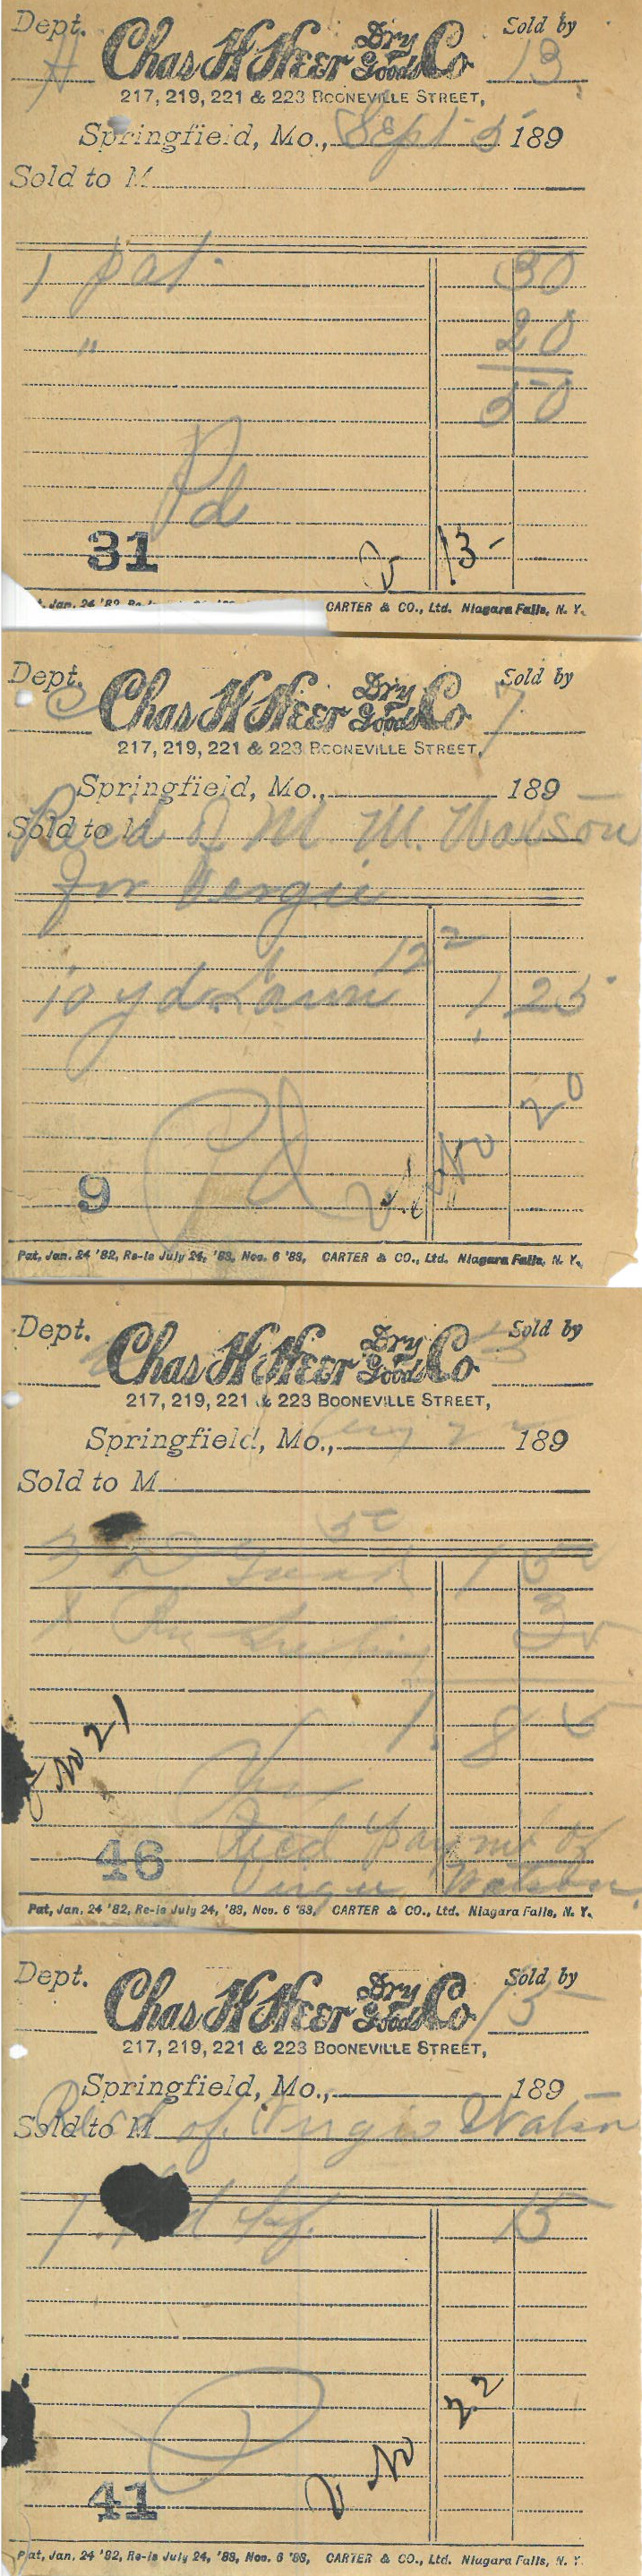 Dept. Chas H Heer Dry Goods Co Sold by
H 13
217, 219, 221 & 223 BOONEVILLE STREET,
Springfield, Mo., Sept 5 189
Sold to M
1 pat. 30
" 20
50
Pd
31 V 13-
CARTER & CO., Ltd. Niagara Falls, N. Y.
Dept. Chas H Heer Dry Goods Co Sold by
C 7
217, 219, 221 & 223 BOONEVILLE STREET,
Springfield, Mo., 189
Sold to M
Recd of M. M. Watson
for Vergie
12 2
10 yds Lawn 1 25
Pd
20
9
Pat, Jan. 24 '82, Re-is July 24, '83, Nov. 6 '83, CARTER & CO., Ltd. Niagara Falls, N. Y.
Dept. Chas H Heer Dry Goods Co Sold by
13
217, 219, 221 & 223 BOONEVILLE STREET,
Springfield, Mo., 189
Sold to M
3 1 5
1. 85
V No 21
46 Recd paymt of
Virgie Watson
Pat, Jan. 24 '82, Re-is July 24, '83, Nov. 6 '83, CARTER & CO., Ltd. Niagara Falls, N. Y.
Dept. Chas H Heer Dry Goods Co Sold by
15
217, 219, 221 & 223 BOONEVILLE STREET,
Springfield, Mo., 189
Sold to M
Recd of Virgie Watson
15
V No 22
41
Pat, Jan. 24 '82, Re-is July 24, '83, Nov. 6 '83, CARTER & CO., Ltd. Niagara Falls, N. Y.